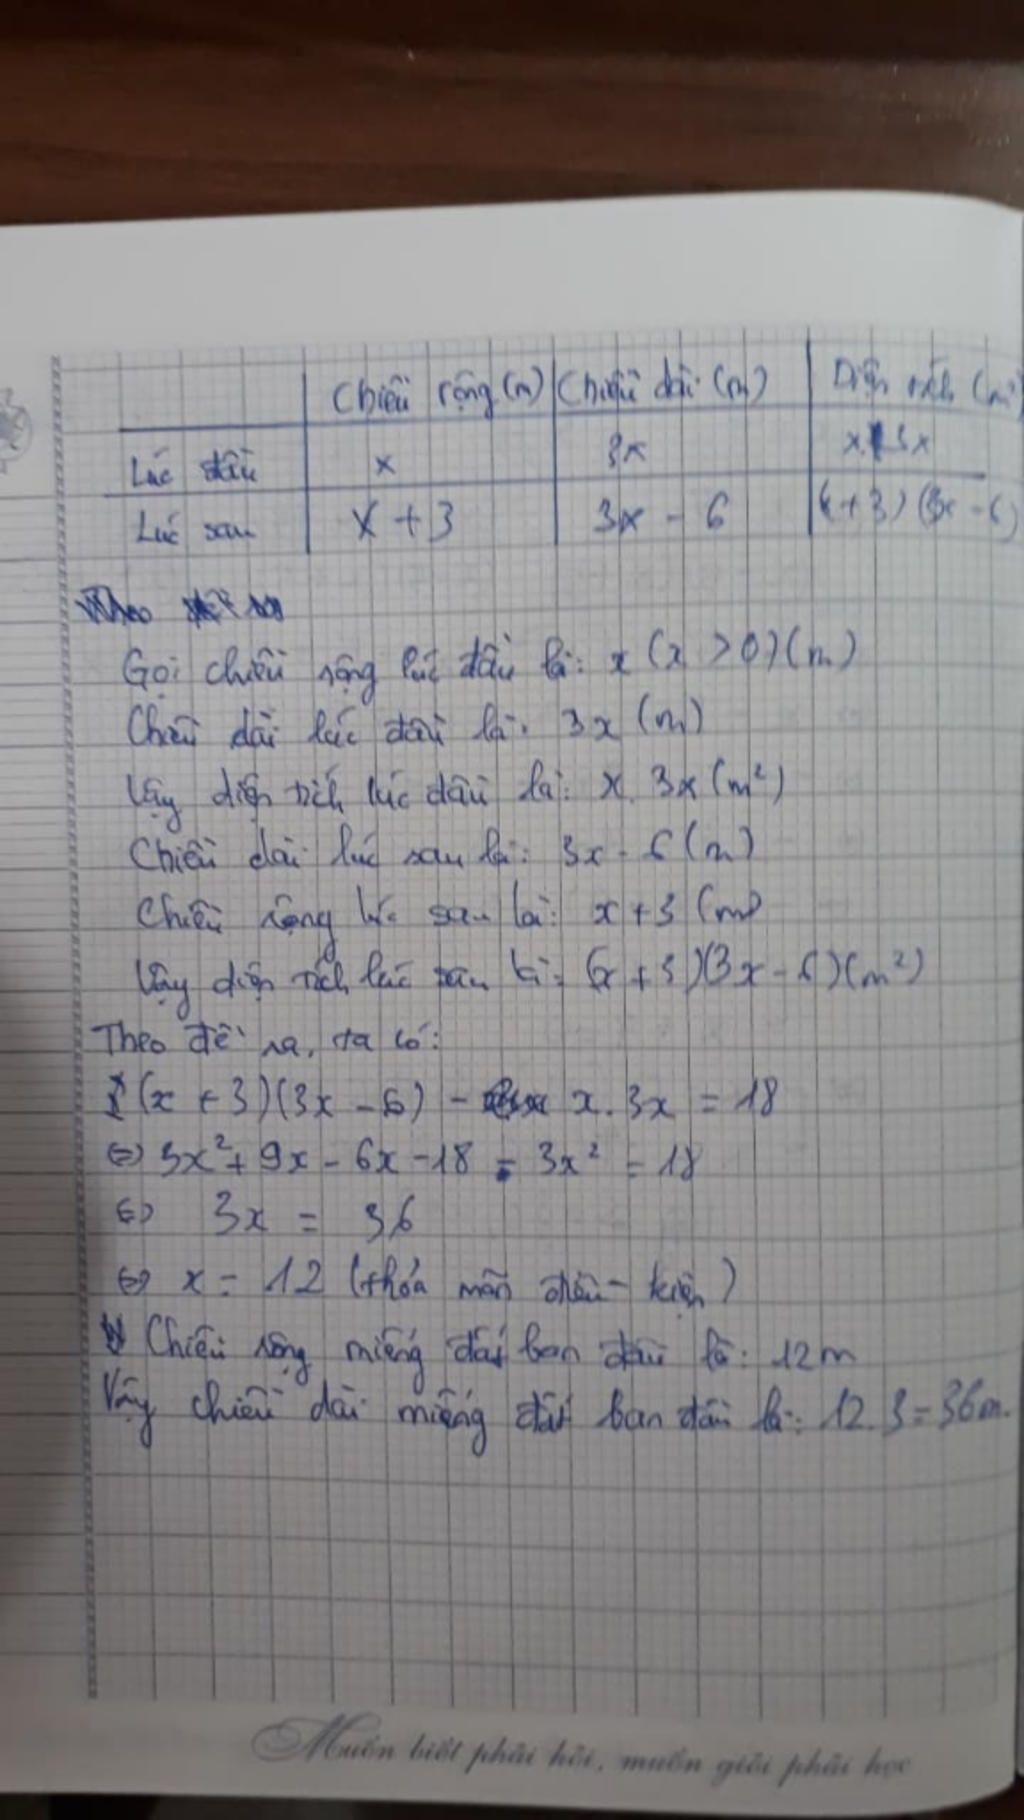 Chiều rộng (m) Chiều dài (m) Diện tích (m²)
Lúc đầu x 3x x.3x
Lúc sau x + 3 3x - 6 (x+3)(3x-6)
Theo
Gọi chiều rộng lúc đầu là: x (x > 0) (m)
Chiều dài lúc đầu là: 3x (m)
Vậy diện tích lúc đầu là: x. 3x (m²)
Chiều dài lúc sau là: 3x - 6 (m)
Chiều rộng lúc sau là: x + 3 (m)
Vậy diện tích lúc sau là: (x + 3)(3x - 6) (m²)
Theo đề ra, ta có:
(x + 3)(3x - 6) - x. 3x = 18
⇔ 3x² + 9x - 6x - 18 - 3x² = 18
⇔ 3x = 36
⇔ x = 12 (thỏa mãn điều - kiện)
Chiều rộng miếng đất ban đầu là: 12m
Vậy chiều dài miếng đất ban đầu là: 12.3 = 36m.
Muốn biết phải hỏi, muốn giỏi phải học